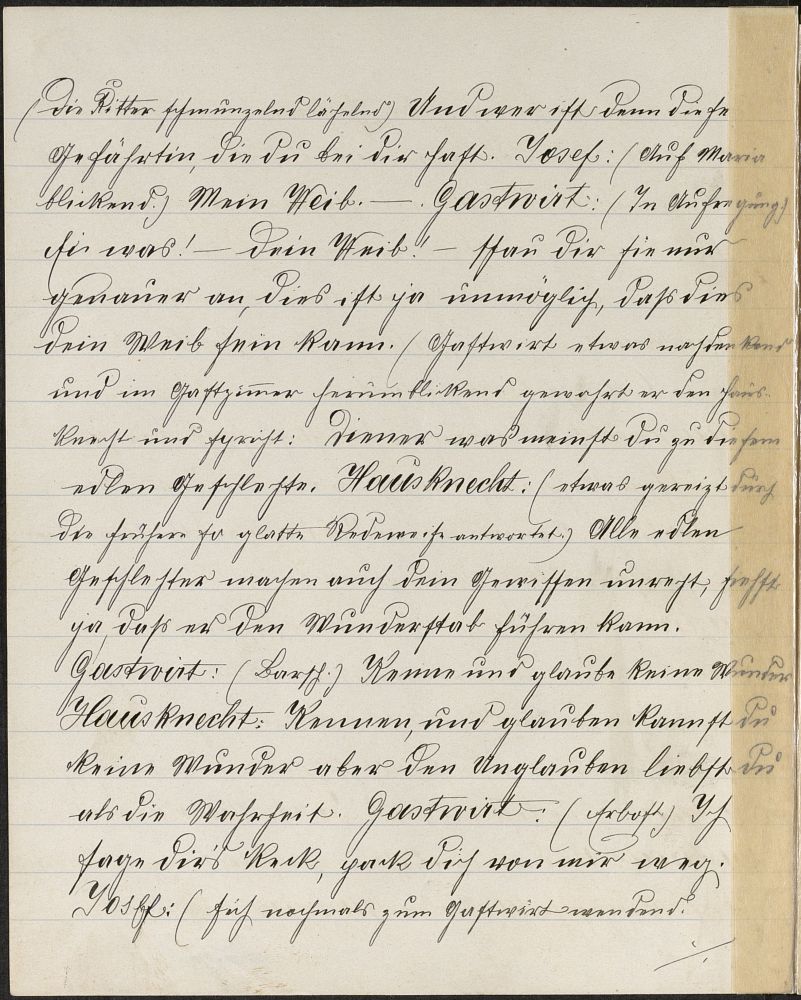 (Die Ritter schmunzelnd lächelnd) Und wer ist denn diese
Gefährtin, die du bei dir hast. Josef: (Auf Maria
blickend.) Mein Weib. — . Gastwirt: (In Aufregung)
Ei was! — Dein Weib! — schau dir sie nur
genauer an, dies ist ja unmöglich, daß dies
dein Weib sein kann. (Gastwirt etwas nachdenkend
und im Gastzim̅er herumblickend gewahrt er den Haus-
knecht und spricht: Diener was meinst du zu diesem
edlen Geschlechte. Hausknecht: (etwas gereizt durch
die frühere so glatte Redeweise antwortet.) Alle edlen
Geschlechter machen auch dein Gewissen unrecht, siehst
ja, daß er den Wunderstab führen kann.
Gastwirt: (Barsch.) Kenne und glaube keine Wunder
Hausknecht: Kennen, und glauben kannst du
keine Wunder aber den Unglauben liebst du
als die Wahrheit. Gastwirt: (Erbost) Ich
sage dirs keck, pack dich von mir weg.
Josef: (sich nochmals zum Gastwirt wendend.
./.